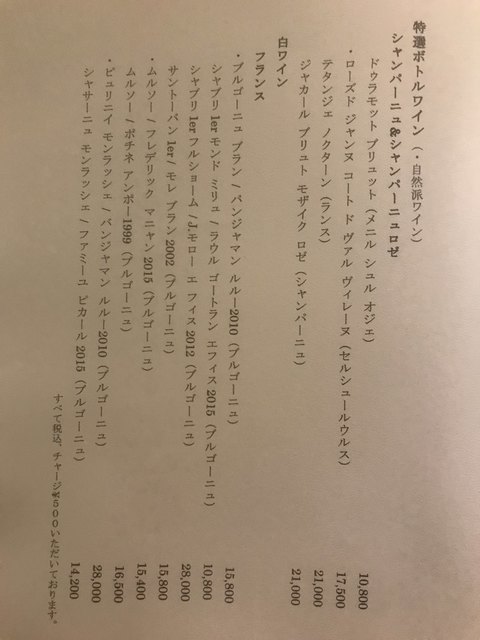 特選ボトルワイン（・自然派ワイン）
シャンパーニュ&シャンパーニュロゼ
ドゥラモット ブリュット（メニル シュル オジェ） 10,800
・ローズド ジャンヌ コート ド ヴァル ヴィレーヌ（セルシュールウルス） 17,500
テタンジェ ノクターン（ランス） 21,000
ジャカール ブリュット モザイク ロゼ（シャンパーニュ） 21,000
白ワイン
フランス
・ブルゴーニュ ブラン / バンジャマン ルルー2010（ブルゴーニュ） 15,800
シャブリ1er モンド ミリュ / ラウル ゴートラン エフィス2015（ブルゴーニュ） 10,800
シャブリ1er フルショーム / J.モロー エ フィス2012（ブルゴーニュ） 28,000
サントーバン1er / モレ ブラン2002（ブルゴーニュ） 15,800
・ムルソー / フレデリック マニャン2015（ブルゴーニュ） 15,400
ムルソー / ポチネ アンポー1999（ブルゴーニュ） 16,500
・ピュリニィ モンラッシェ / バンジャマン ルルー2010（ブルゴーニュ） 28,000
シャサーニュ モンラッシェ / ファミーユ ピカール2015（ブルゴーニュ） 14,200
すべて税込、チャージ¥500いただいております。